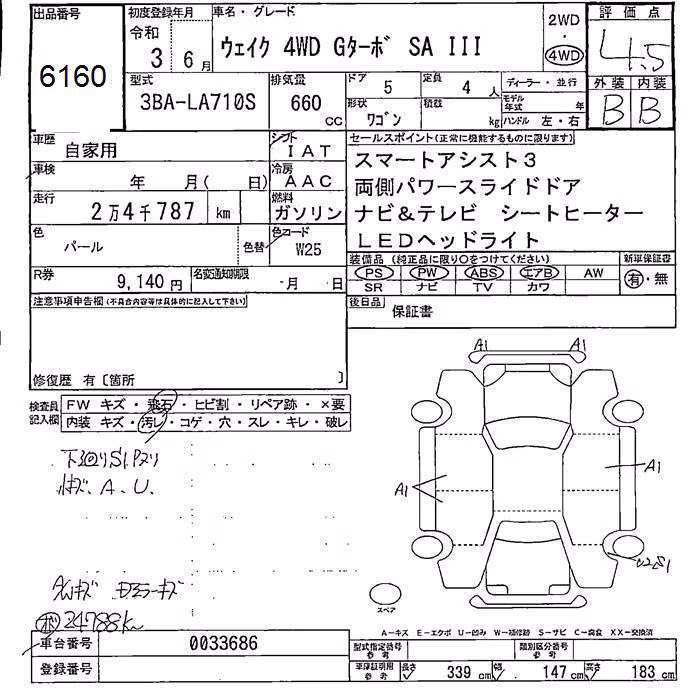 出品番号
6160
初度登録年月
令和
3 6月
車名・グレード
ウェイク 4WD Gターボ SA III
2WD
・
4WD
評価点
4.5
外装 内装
B B
型式
3BA-LA710S
排気量
660
CC
ドア 5
定員 4 人
形状 ワゴン
積載 kg
ディーラー・並行
モデル年式 年
ハンドル 左・右
車歴
自家用
シフト
IAT
車検
年 月( 日)
冷房
AAC
走行
2万4千787 km
燃料
ガソリン
色
パール
色替
色コード
W25
R券
9,140円
名変通知期限
・月 ・日
セールスポイント(正常に機能するものに限ります)
スマートアシスト3
両側パワースライドドア
ナビ&テレビ シートヒーター
LEDヘッドライト
装備品(純正品に限り○をつけてください)
PS PW ABS エアB AW
SR ナビ TV カワ
新車保証書
有・無
後日品
保証書
注意事項申告欄(不具合内容等は具体的に記入して下さい)
修復歴 有〔箇所 〕
検査員記入欄
FW キズ・飛石・ヒビ割・リペア跡・×要
内装 キズ・汚レ・コゲ・穴・スレ・キレ・破レ
A.U.
24788k
A1 A1
A1 A1
スペア
A―キズ E―エクボ U―凹み W―補修跡 S―サビ C―腐食 XX―交換済
車台番号
0033686
登録番号
型式指定番号参考
類別区分番号参考
車庫証明用参考
長さ 339 cm
幅 147 cm
高さ 183 cm